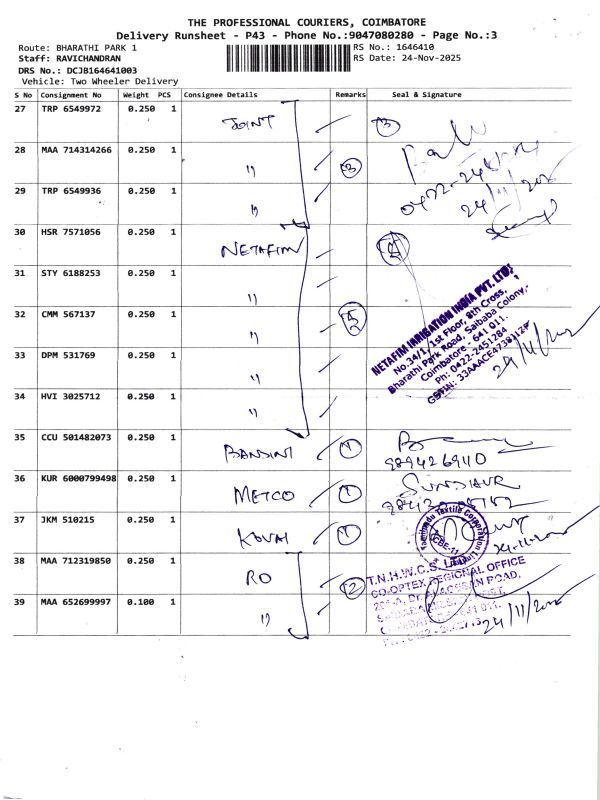 THE PROFESSIONAL COURIERS, COIMBATORE
Delivery Runsheet - P43 - Phone No.:9047080280 - Page No.:3
Route: BHARATHI PARK 1
RS No.: 1646410
Staff: RAVICHANDRAN
RS Date: 24-Nov-2025
DRS No.: DCJB164641003
Vehicle: Two Wheeler Delivery
S No Consignment No Weight PCS Consignee Details Remarks Seal & Signature
27 TRP 6549972 0.250 1 JOINT 3
28 MAA 714314266 0.250 1 " 3
29 TRP 6549936 0.250 1 "
30 HSR 7571056 0.250 1 NETAFIM
31 STY 6188253 0.250 1 "
32 CMM 567137 0.250 1 " 5
33 DPM 531769 0.250 1 "
34 HVI 3025712 0.250 1 "
NETAFIM IRRIGATION INDIA PVT. LTD.
No.34/1, 1st Floor, 8th Cross,
Bharathi Park Road, Saibaba Colony,
Coimbatore - 641 011.
Ph: 0422-2451284
35 CCU 501482073 0.250 1 BANSINI 1
36 KUR 6000799498 0.250 1 METCO 1
37 JKM 510215 0.250 1 KOVAI 1
Tamilnadu Textile Corporation
CBE-11
38 MAA 712319850 0.250 1 RO 2
39 MAA 652699997 0.100 1 "
T.N.H.W.C.S. Ltd.
CO-OPTEX REGIONAL OFFICE